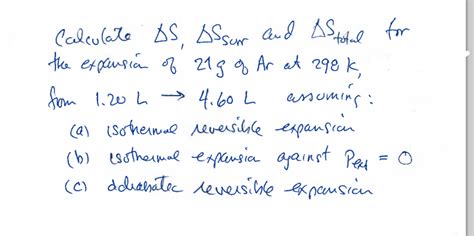 Calculate ΔS, ΔSsurr and ΔStotal for
the expansion of 21 g of Ar at 298 K,
from 1.20 L → 4.60 L assuming :
(a) isothermal reversible expansion
(b) isothermal expansion against Pext = 0
(c) adiabatic reversible expansion